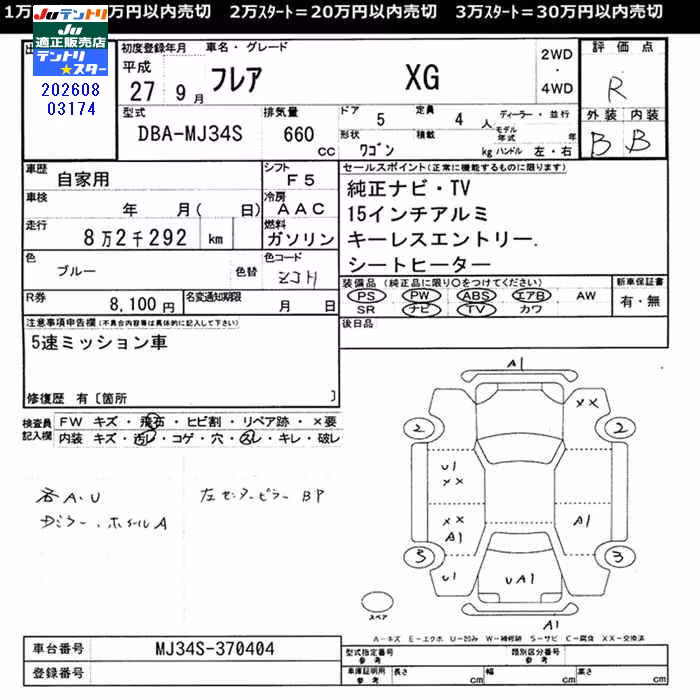 1万 万円以内売切 2万ｽﾀｰﾄ＝20万円以内売切 3万ｽﾀｰﾄ＝30万円以内売切
Juテントリ
Ju
適正販売店
テントリ
★スター
202608
03174
初度登録年月 車名・グレード
平成 27 9月 フレア XG
2WD
・
4WD
評価点
R
外装 内装
B B
型式 DBA-MJ34S
排気量 660 cc
ドア 5 定員 4 人 ディーラー・並行
形状 ワゴン 積載 kg モデル年式 年
ハンドル 左・右
車歴 自家用
シフト F5
車検 年 月( 日)
冷房 AAC
走行 8万2千292 km
燃料 ガソリン
色 ブルー 色替
色コード
R券 8,100円 名変通知期限 月 日
セールスポイント(正常に機能するものに限ります)
純正ナビ・TV
15インチアルミ
キーレスエントリー.
シートヒーター
装備品 (純正品に限り○をつけてください)
PS PW ABS エアB AW
SR ナビ TV カワ
新車保証書
有・無
後日品
注意事項申告欄(不具合内容等は具体的に記入して下さい)
5速ミッション車
修復歴 有〔箇所 〕
検査員記入欄
FW キズ・飛石・ヒビ割・リペア跡・×要
内装 キズ・汚レ・コゲ・穴・スレ・キレ・破レ
各A・U
Dミラー・ホイールA
左センターピラー BP
A1
××
2 2
U1
××
××
A1
A1
3 3
U1
UA1
A1
スペア
A－キズ E－エクボ U－凹み W－補修跡 S－サビ C－腐食 XX－交換済
車台番号 MJ34S-370404
登録番号
型式指定番号 参考
類別区分番号 参考
車庫証明用 参考 長さ cm 幅 cm 高さ cm